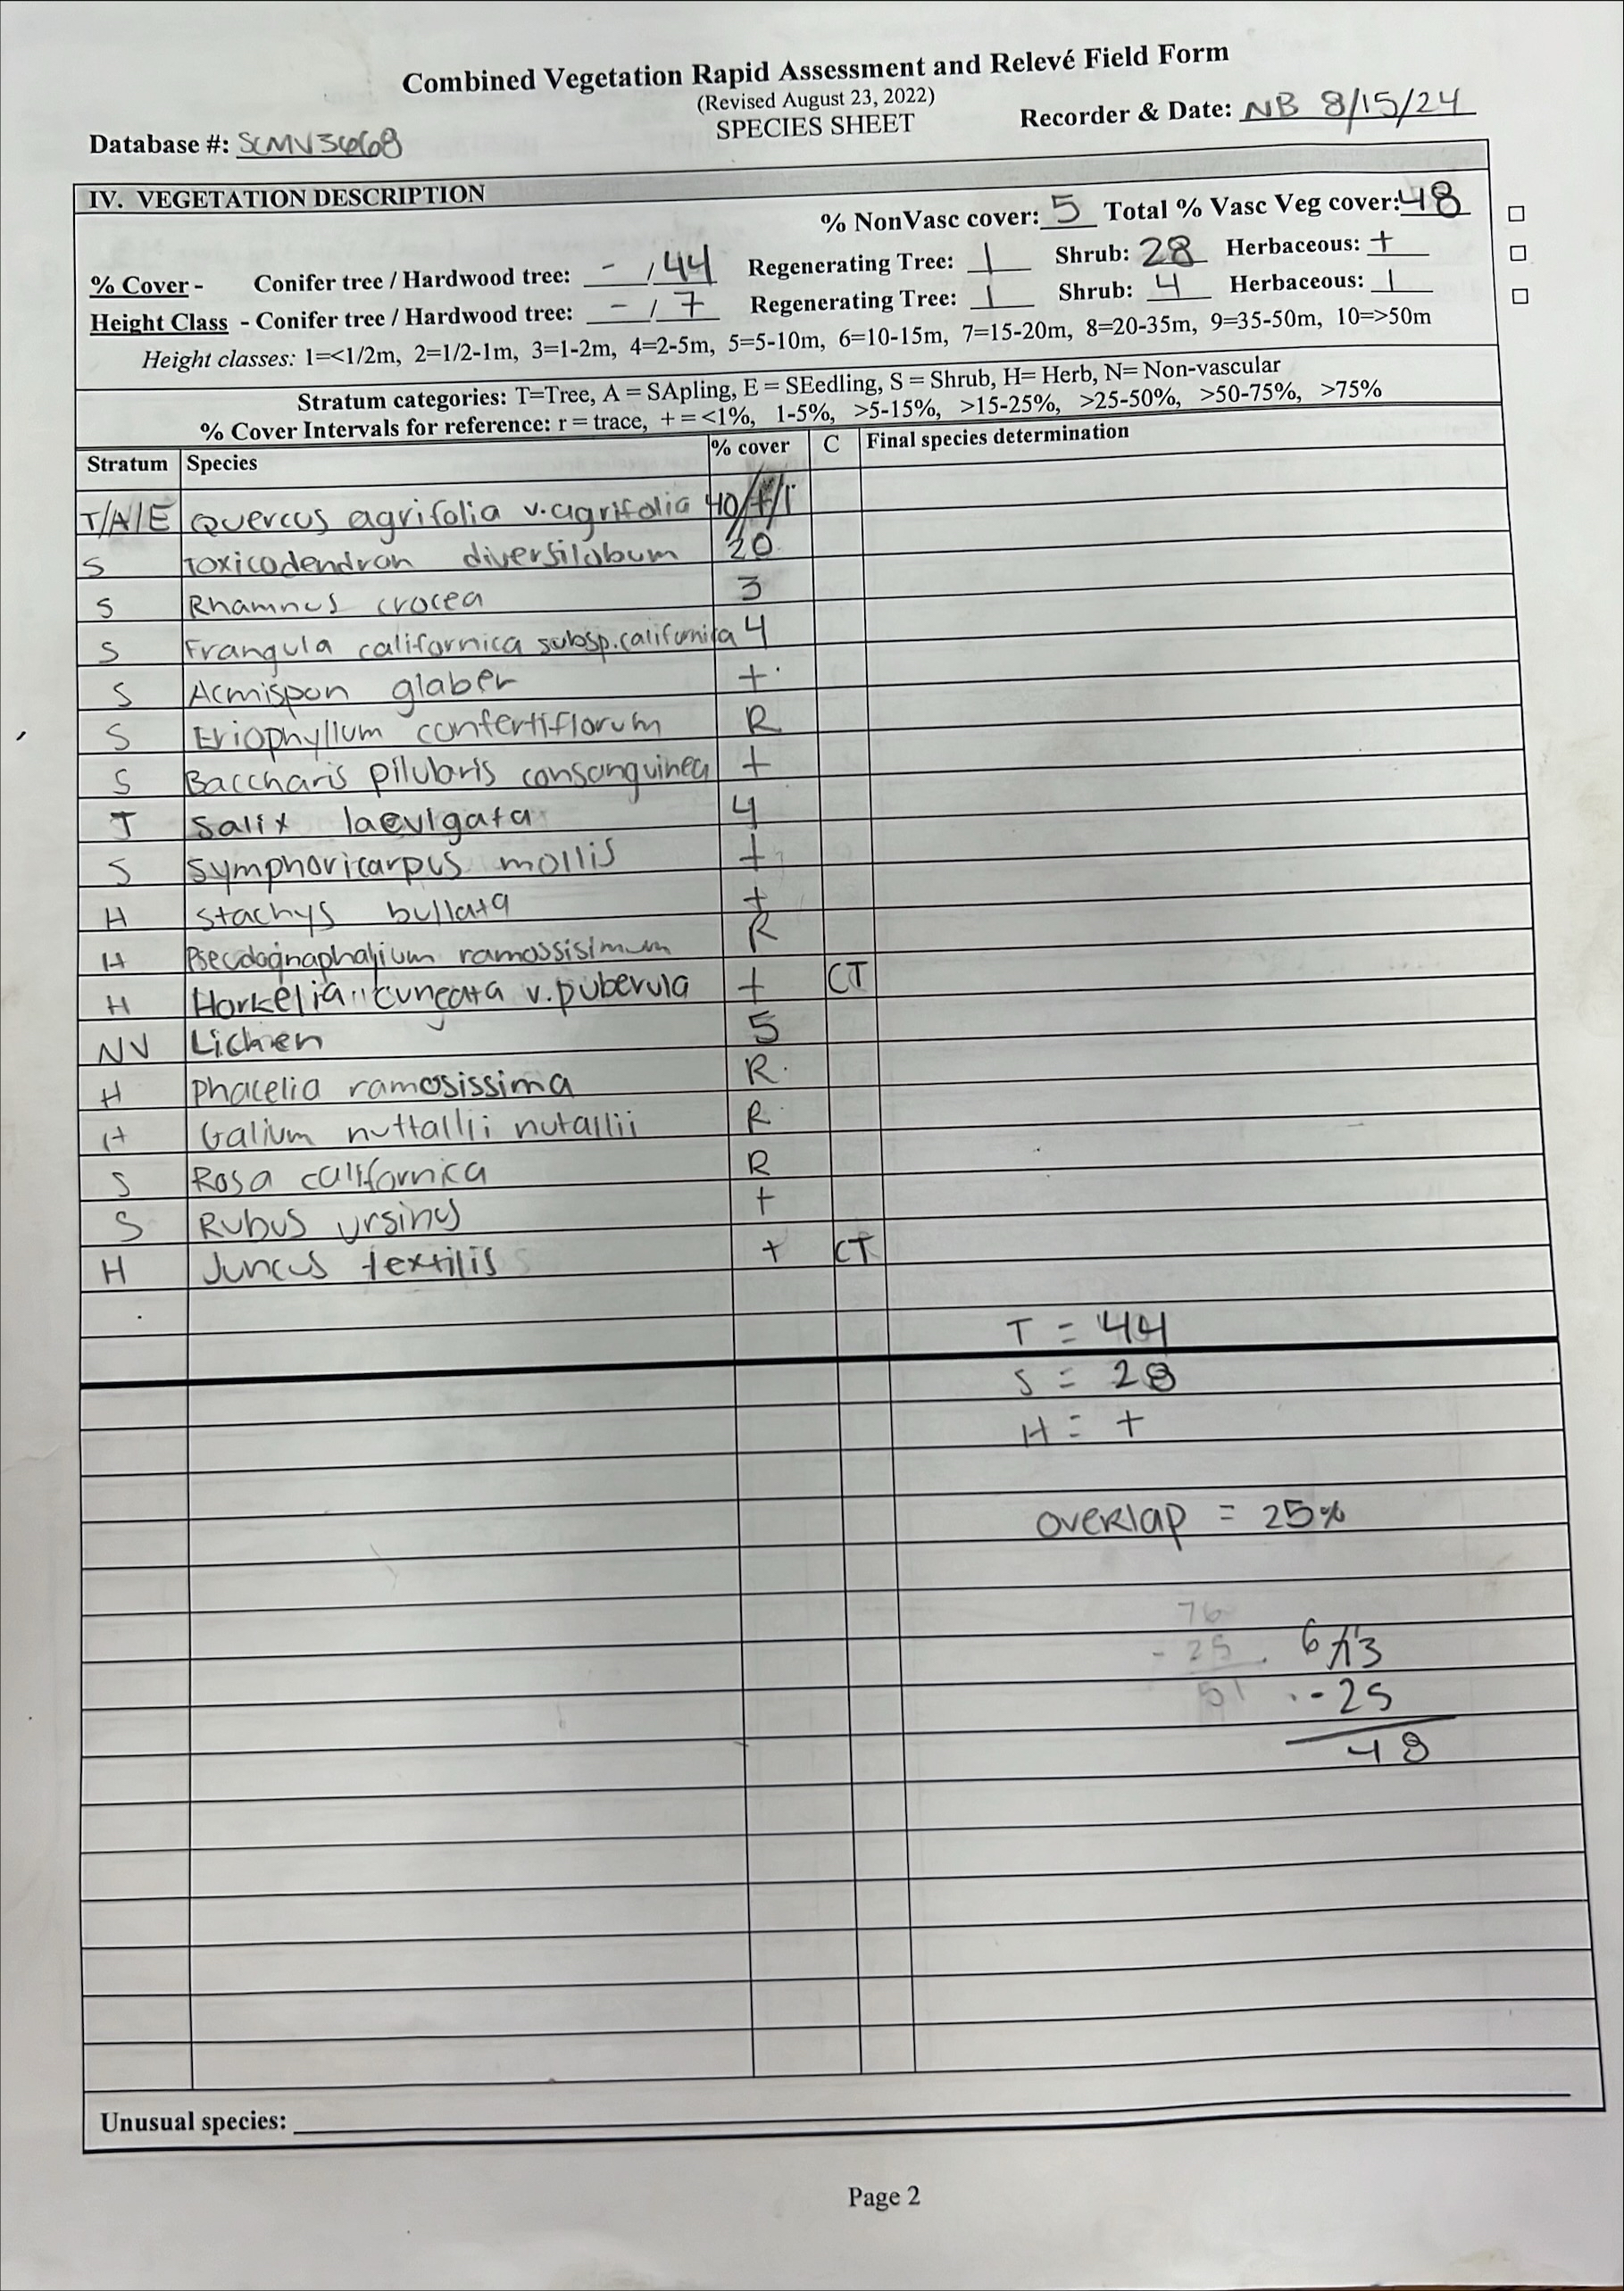 Combined Vegetation Rapid Assessment and Relevé Field Form
(Revised August 23, 2022)
SPECIES SHEET
Recorder & Date: NB 8/15/24
Database #:
IV. VEGETATION DESCRIPTION
% NonVasc cover: 5 Total % Vasc Veg cover: 48
% Cover - Conifer tree / Hardwood tree: - / 44 Regenerating Tree: 1 Shrub: 28 Herbaceous: +
Height Class - Conifer tree / Hardwood tree: - / 7 Regenerating Tree: 1 Shrub: 4 Herbaceous: 1
Height classes: 1=<1/2m, 2=1/2-1m, 3=1-2m, 4=2-5m, 5=5-10m, 6=10-15m, 7=15-20m, 8=20-35m, 9=35-50m, 10=>50m
Stratum categories: T=Tree, A = SApling, E = SEedling, S = Shrub, H= Herb, N= Non-vascular
% Cover Intervals for reference: r = trace, + = <1%, 1-5%, >5-15%, >15-25%, >25-50%, >50-75%, >75%
Stratum Species % cover C Final species determination
T/A/E Quercus agrifolia v. agrifolia 40/+/1
S Toxicodendron diversilobum 20
S Rhamnus crocea 3
S Frangula californica subsp. californica 4
S Acmispon glaber +
S Eriophyllum confertiflorum R
S Baccharis pilularis consanguinea +
T Salix laevigata 4
S Symphoricarpus mollis +
H Stachys bullata +
H Pseudognaphalium ramossisimum R
H Horkelia cuneata v. puberula + CT
NV Lichen 5
H Phacelia ramosissima R
H Galium nuttallii nutallii R
S Rosa californica R
S Rubus ursinus +
H Juncus textilis + CT
T = 44
S = 28
H = +
overlap = 25%
76
- 25
51
6 13
- 25
48
Unusual species:
Page 2